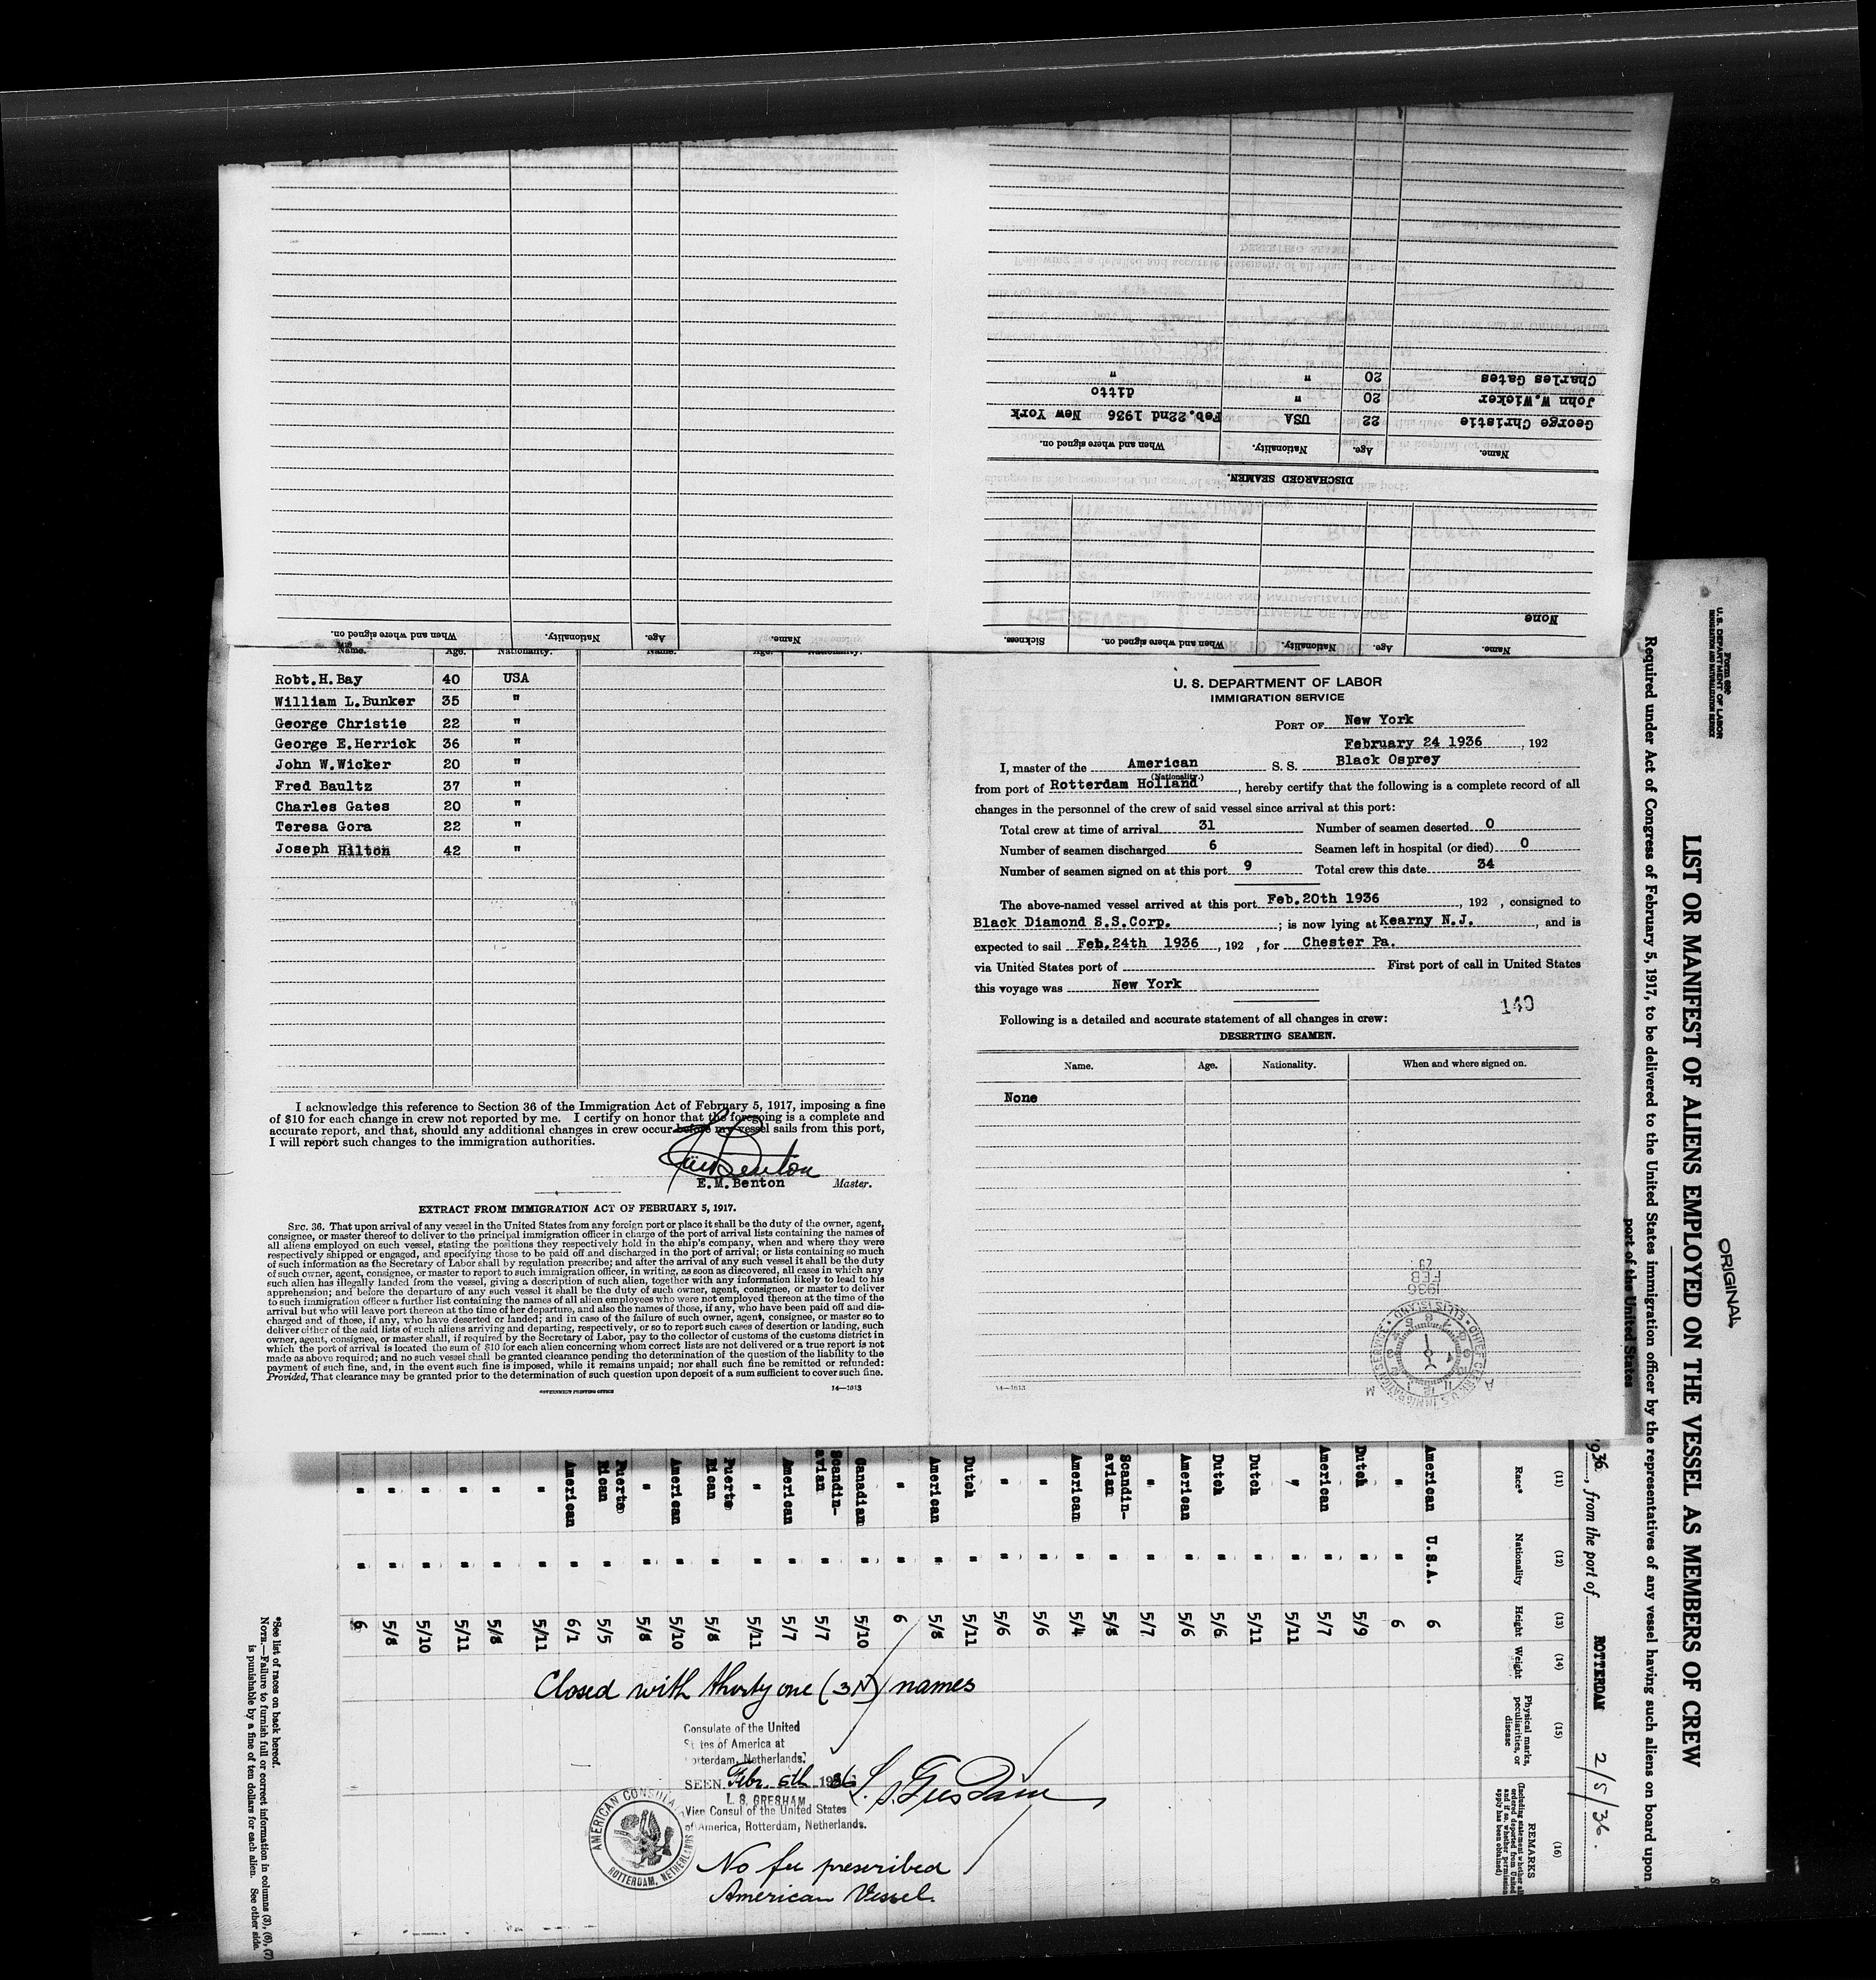 When and where signed on. Nationality. Age. Name.
When and where signed on. Nationality. Age. Name.
George Christie 22 USA Feb.22nd 1936 New York
John W.Wicker 20 " ditto
Charles Gates 20 " "
DISCHARGED SEAMEN.
Name. Age. Nationality. When and where signed on. Sickness.
None
Name. Age. Nationality. Name. Age. Nationality.
Robt.H.Bay 40 USA
William L.Bunker 35 "
George Christie 22 "
George E.Herrick 36 "
John W.Wicker 20 "
Fred Baultz 37 "
Charles Gates 20 "
Teresa Gora 22 "
Joseph Hilton 42 "
I acknowledge this reference to Section 36 of the Immigration Act of February 5, 1917, imposing a fine
of $10 for each change in crew not reported by me. I certify on honor that the foregoing is a complete and
accurate report, and that, should any additional changes in crew occur before my vessel sails from this port,
I will report such changes to the immigration authorities.
E.M.Benton Master.
EXTRACT FROM IMMIGRATION ACT OF FEBRUARY 5, 1917.
SEC. 36. That upon arrival of any vessel in the United States from any foreign port or place it shall be the duty of the owner, agent,
consignee, or master thereof to deliver to the principal immigration officer in charge of the port of arrival lists containing the names of
all aliens employed on such vessel, stating the positions they respectively hold in the ship's company, when and where they were
respectively shipped or engaged, and specifying those to be paid off and discharged in the port of arrival; or lists containing so much
of such information as the Secretary of Labor shall by regulation prescribe; and after the arrival of any such vessel it shall be the duty
of such owner, agent, consignee, or master to report to such immigration officer, in writing, as soon as discovered, all cases in which any
such alien has illegally landed from the vessel, giving a description of such alien, together with any information likely to lead to his
apprehension; and before the departure of any such vessel it shall be the duty of such owner, agent, consignee, or master to deliver
to such immigration officer a further list containing the names of all alien employees who were not employed thereon at the time of the
arrival but who will leave port thereon at the time of her departure, and also the names of those, if any, who have been paid off and dis-
charged and of those, if any, who have deserted or landed; and in case of the failure of such owner, agent, consignee, or master so to
deliver either of the said lists of such aliens arriving and departing, respectively, or so to report such cases of desertion or landing, such
owner, agent, consignee, or master shall, if required by the Secretary of Labor, pay to the collector of customs of the customs district in
which the port of arrival is located the sum of $10 for each alien concerning whom correct lists are not delivered or a true report is not
made as above required; and no such vessel shall be granted clearance pending the determination of the question of the liability to the
payment of such fine, and, in the event such fine is imposed, while it remains unpaid; nor shall such fine be remitted or refunded:
Provided, That clearance may be granted prior to the determination of such question upon deposit of a sum sufficient to cover such fine.
GOVERNMENT PRINTING OFFICE 14—1013
U. S. DEPARTMENT OF LABOR
IMMIGRATION SERVICE
PORT OF New York
February 24 1936, 192
I, master of the American S. S. Black Osprey
(Nationality.)
from port of Rotterdam Holland, hereby certify that the following is a complete record of all
changes in the personnel of the crew of said vessel since arrival at this port:
Total crew at time of arrival 31 Number of seamen deserted 0
Number of seamen discharged 6 Seamen left in hospital (or died) 0
Number of seamen signed on at this port 9 Total crew this date 34
The above-named vessel arrived at this port Feb.20th 1936, 192 , consigned to
Black Diamond S.S.Corp. ; is now lying at Kearny N.J. , and is
expected to sail Feb.24th 1936 , 192 , for Chester Pa.
via United States port of First port of call in United States
this voyage was New York
140
Following is a detailed and accurate statement of all changes in crew:
DESERTING SEAMEN.
Name. Age. Nationality. When and where signed on.
None
1936
FEB
14—1013
Form 689
U.S. DEPARTMENT OF LABOR
IMMIGRATION AND NATURALIZATION SERVICE
ORIGINAL
LIST OR MANIFEST OF ALIENS EMPLOYED ON THE VESSEL AS MEMBERS OF CREW
Required under Act of Congress of February 5, 1917, to be delivered to the United States immigration officer by the representatives of any vessel having such aliens on board upon
port of the United States
1936, from the port of ROTTERDAM 2/5/36.
(11) (12) (13) (14) (15) (16)
Race* Nationality Height Weight Physical marks, peculiarities, or disease REMARKS
American U.S.A. 6
" " 6
Dutch " 5/9
American " 5/7
" " 5/11
Dutch " 5/11
Dutch " 5/6
American " 5/6
" " 5/7
Scandin-avian " 5/8
American " 5/4
" " 5/6
" " 5/6
Dutch " 5/11
American " 5/8
" " 6
Canadian " 5/10
Scandin-avian " 5/7
American " 5/7
" " 5/11
Puerto Rican " 5/8
American " 5/10
" " 5/8
Puerto Rican " 5/5
American " 6/1
" " 5/11
" " 5/8
" " 5/11
" " 5/10
" " 5/8
" " 6
Closed with thirty one (31) names
Consulate of the United
States of America at
Rotterdam, Netherlands.
SEEN Febr. 5th 1936
L. S. GRESHAM
Vice Consul of the United States
of America, Rotterdam, Netherlands.
AMERICAN CONSULA
ROTTERDAM, NETHERLANDS
No fee prescribed
American Vessel.
*See list of races on back hereof.
NOTE.—Failure to furnish full or correct information in columns (3), (6), (7)
is punishable by a fine of ten dollars for each alien. See other side.